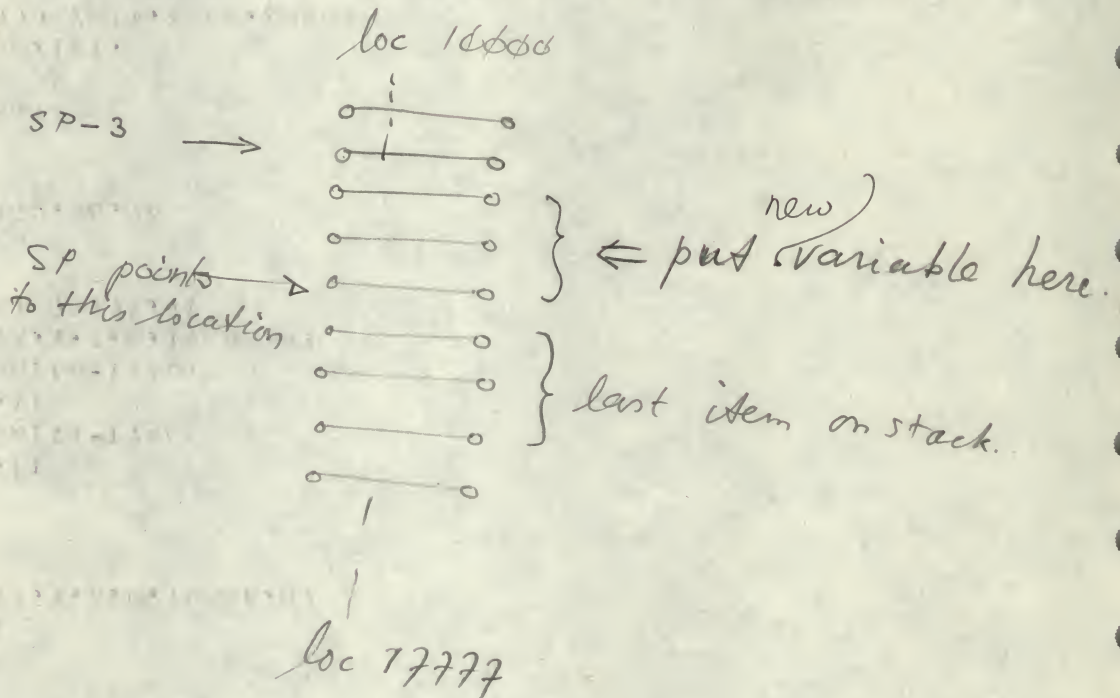 loc 10000
SP-3 →
new
SP points
to this location
⇐ put variable here.
last item on stack.
loc 17777